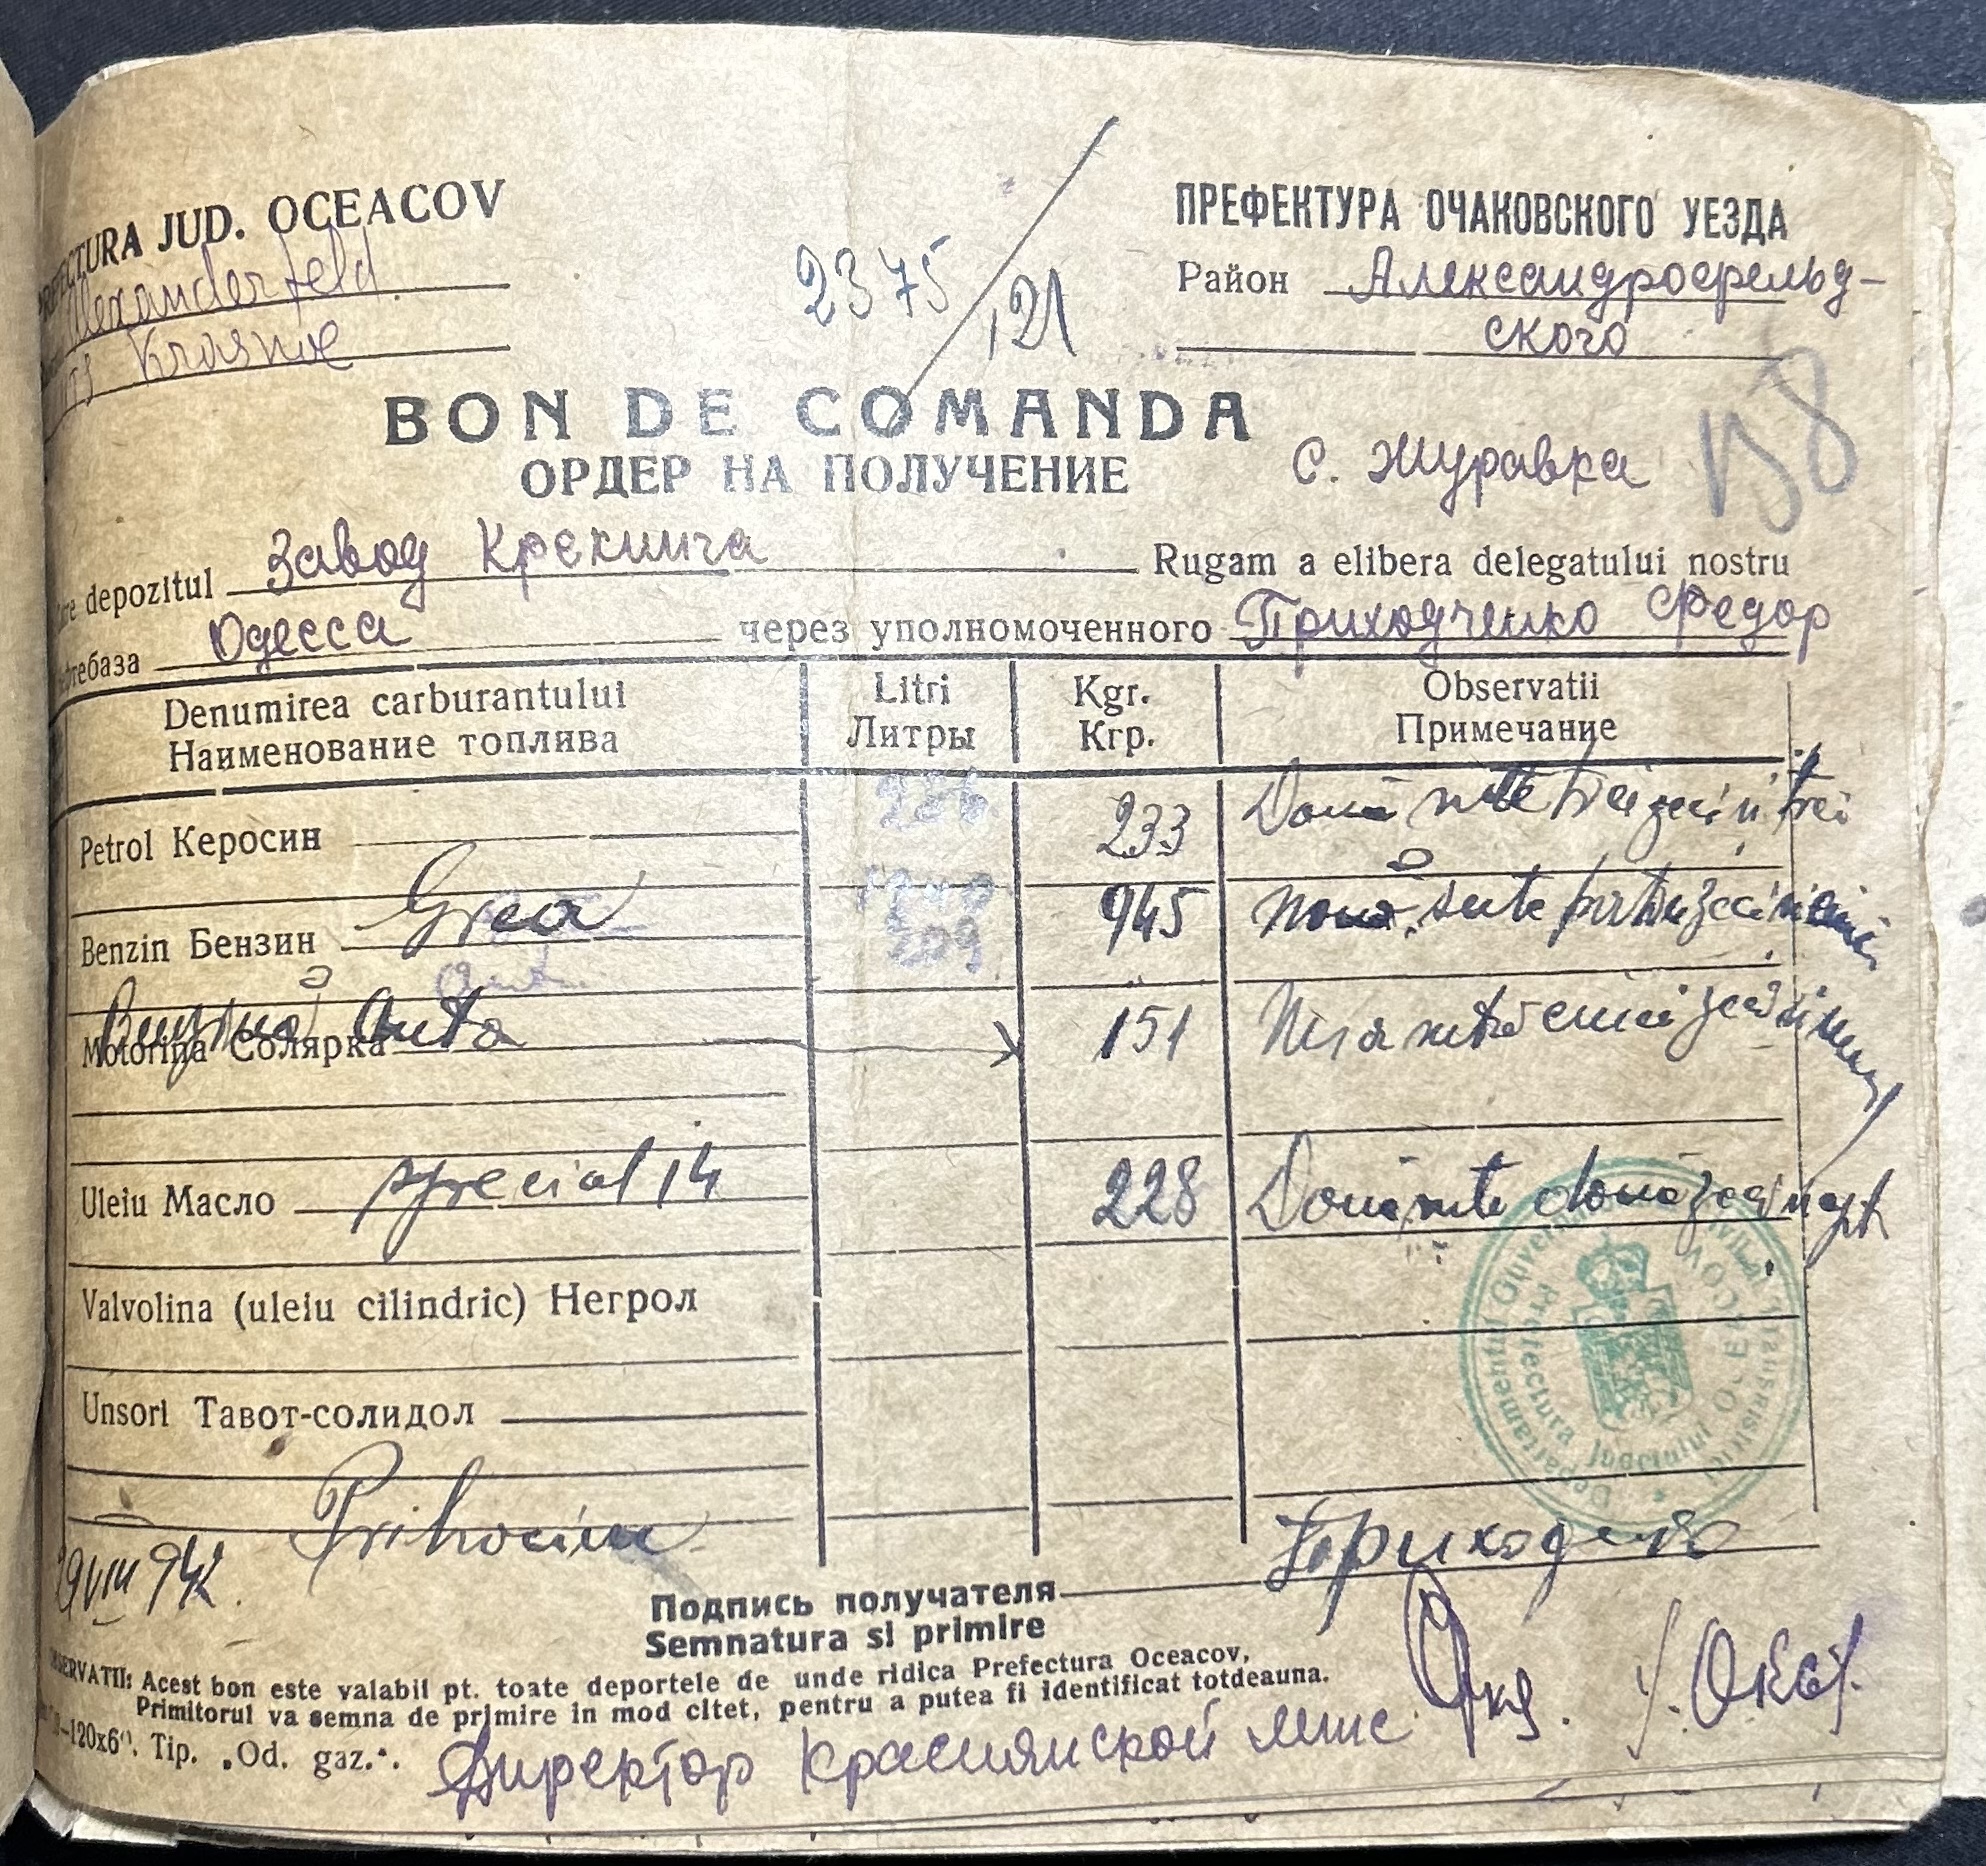 PREFECTURA JUD. OCEACOV
ПРЕФЕКТУРА ОЧАКОВСКОГО УЕЗДА
Alexanderfeld
2375/121
Район Александрофельд-
Krasnoe
ского
BON DE COMANDA
158
ОРДЕР НА ПОЛУЧЕНИЕ
с. Журавка
depozitul Завод Крекинга Rugam a elibera delegatului nostru
Одесса через уполномоченного Приходченко Федор
Denumirea carburantului Litri Kgr. Observatii
Наименование топлива Литры Кгр. Примечание
Petrol Керосин 233 Două sute treizeci si trei
Benzin Бензин Grea 209 945 nouă sute patruzeci si cinci
Auto
Motorina Солярка Benzină Auto 151 una sută cinci zeci si unu
Uleiu Масло special 14 228 Două sute două zeci si opt
Valvolina (uleiu cilindric) Негрол
Unsori Тавот-солидол
Departamentul Guvernământul Civil al Transnistriei
Prefectura Judetului OCEACOV
29 VIII 942
Подпись получателя Приходченко
Semnatura si primire
OBSERVATII: Acest bon este valabil pt. toate deportele de unde ridica Prefectura Oceacov,
Primitorul va semna de primire in mod citet, pentru a putea fi identificat totdeauna.
–120x6". Tip. „Od. gaz.“.
Директор Краснянской ммс